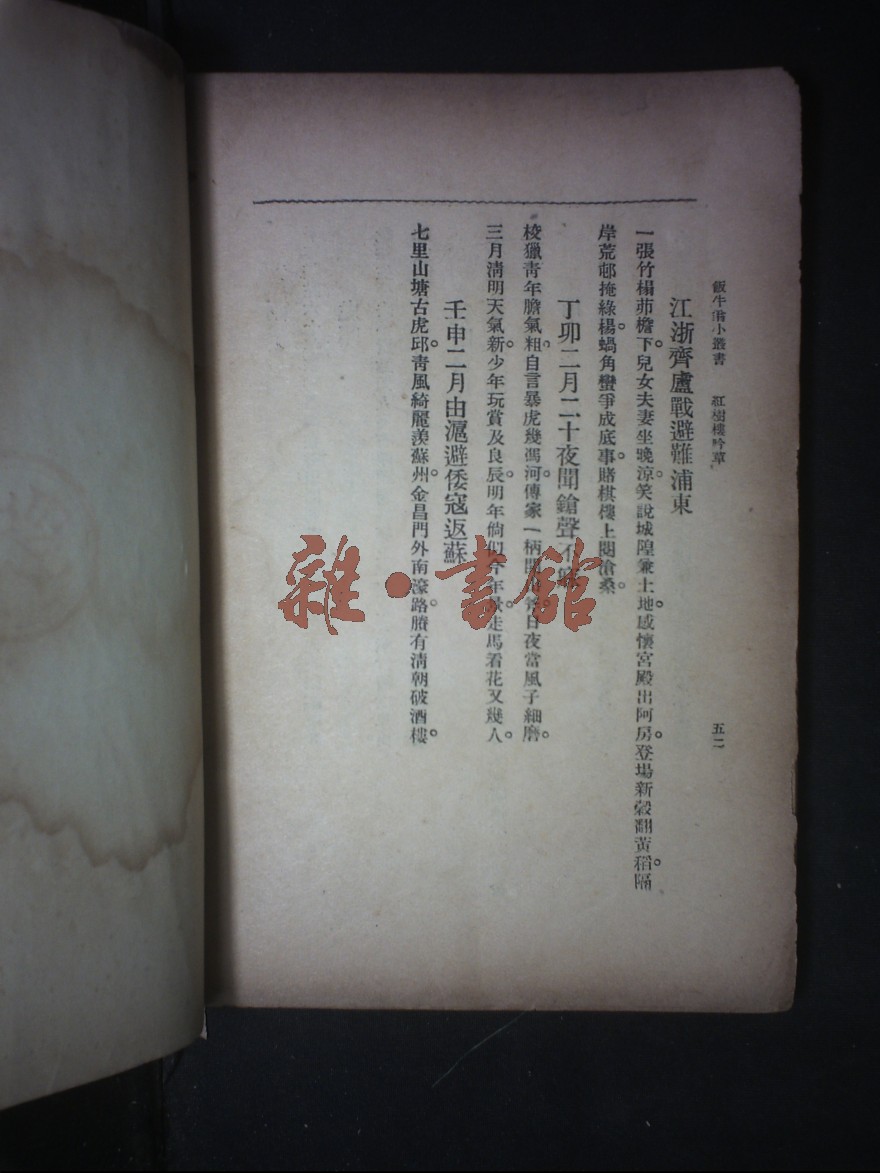 飯牛翁小叢書　紅樹樓吟草　五二
江浙齊盧戰避難浦東
一張竹榻茆檐下兒女夫妻坐晚涼。笑說城隍兼土地感懷宮殿出阿房。登場新穀翻黃稻隔
岸荒邨掩綠楊。蝸角蠻爭成底事賭棋樓上閱滄桑。
丁卯二月二十夜聞鎗聲不
梭獵青年膽氣粗。自言暴虎幾馮河。傳家一柄 日夜當風子細磨。
三月淸明天氣新。少年玩賞及良辰。明年倘似今年 走馬看花又幾人。
壬申二月由滬避倭寇返蘇
七里山塘古虎邱。靑風綺麗羨蘇州。金昌門外南濠路。賸有淸朝破酒樓。
雜·書館